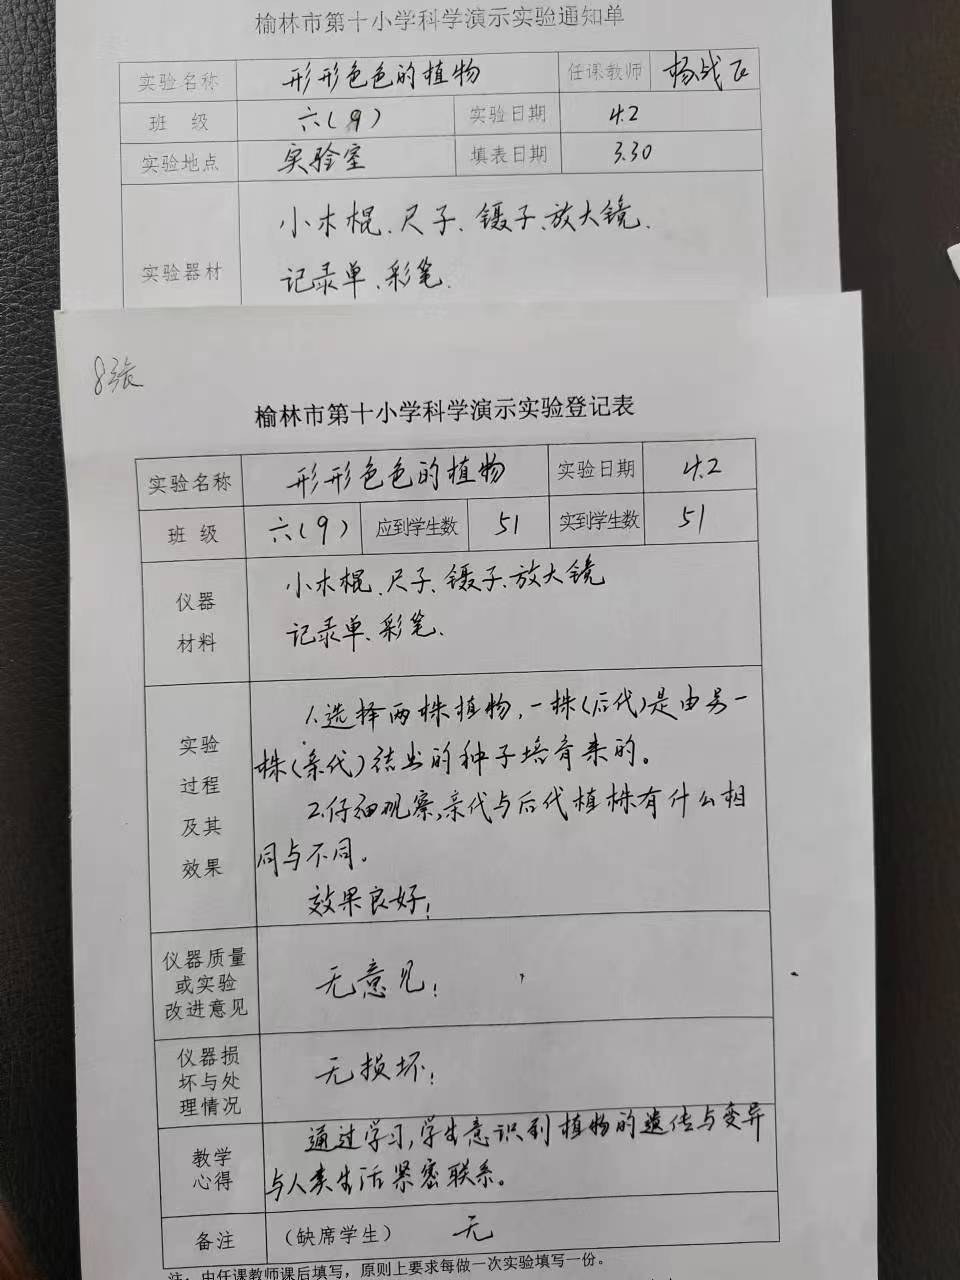 榆林市第十小学科学演示实验通知单
实验名称 形形色色的植物 任课教师 杨战飞
班 级 六(9) 实验日期 4.2
实验地点 实验室 填表日期 3.30
小木棍、尺子、镊子、放大镜、
实验器材
记录单、彩笔、
8张
榆林市第十小学科学演示实验登记表
实验名称 形形色色的植物 实验日期 4.2
班 级 六(9) 应到学生数 51 实到学生数 51
仪器
材料
小木棍、尺子、镊子、放大镜
记录单、彩笔、
实验
过程
及其
效果
1.选择两株植物,一株(后代)是由另一
株(亲代)结出的种子培育来的。
2.仔细观察,亲代与后代植株有什么相
同与不同。
效果良好!
仪器质量
或实验
改进意见
无意见!
仪器损
坏与处
理情况
无损坏!
教学
心得
通过学习,学生意识到植物的遗传与变异
与人类生活紧密联系。
备注 (缺席学生) 无
注:由任课教师课后填写,原则上要求每做一次实验填写一份。